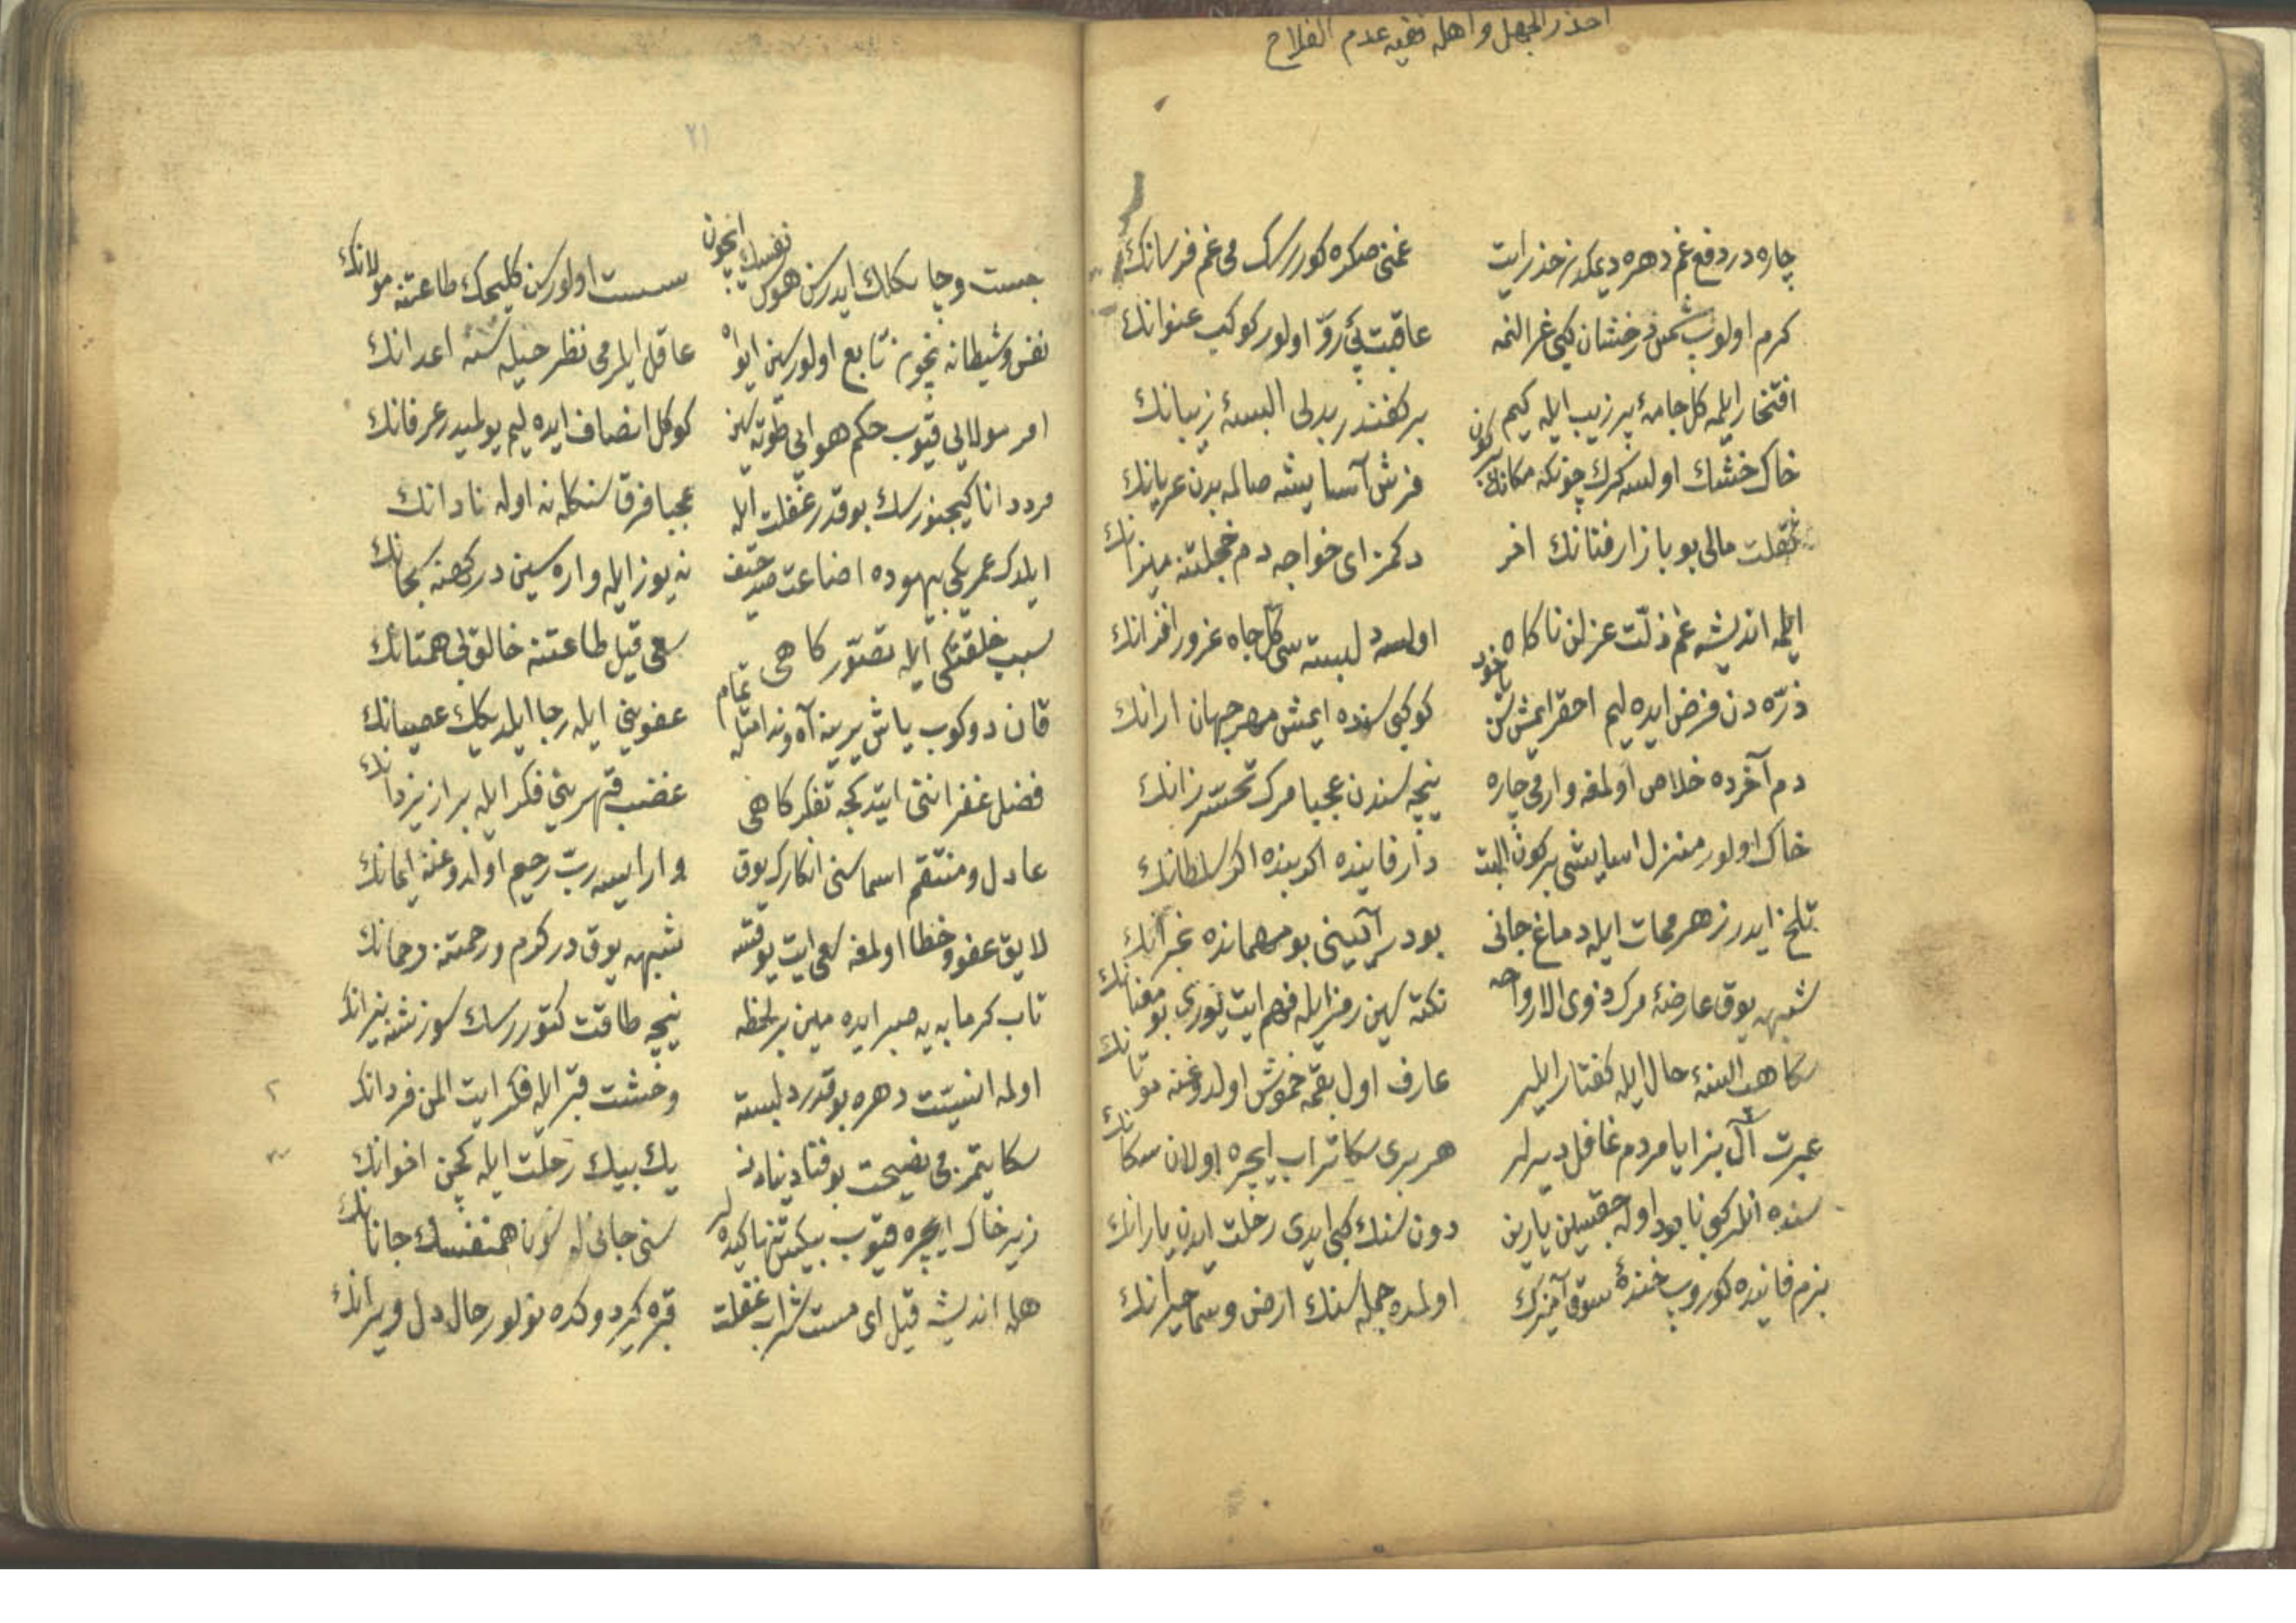 احذر الجهل واهله ففیه عدم الفلاح
چاره در دفع غم دهره دیمكدن حذر ایت غمنی صكره كوررسك می غم فرسانك
كرم اولوب شمس درخشان كبی غرالنمه عاقبت پی رو اولور كوكب عنوانك
افتخار ایلمه كل جامهٔ پر زیب ایله كیم بر كفندر بدلی البسهٔ زیبانك
خاك خشك اولسه كرك چونكه مكانك بركون فرش آسایشه صالمه بدن عریانك
ثقلت مالی بو بازار فنانك اخر دكمز ای خواجه دم خجلتنه میزانك
ایلمه اندیشه غم ذلت عزلن ناكاه اولسه دلبسته سی كل جاه غرور افزانك
ذره دن فرض ایده لیم احقر ایمش سن یا خود كوكبی سنده ایمش مهر جهان ارانك
دم آخرده خلاص اولمغه وار می چاره نیجه سندن عجبا مرك تحسر زانك
خاك اولور منزل اسایشی بركون البت دار فانیده اكر بنده اكر سلطانك
تلخ ایدر زهر ممات ایله دماغ جانی بودر آیینی بو مهمانده غبرانك
شبهه یوق عارضهٔ مرك ذوی الارواحه نكته سین رمز ایله فهم ایت یوری بو معنانك
سكا هب السنهٔ حال ایله كفتار ایلر عارف اول بقمه خموش اولدوغنه موتانك
عبرت آل بزدن ایا مردم غافل دیرلر هر بری سكا تراب ایچره اولان سكانك
سنده انلر كبی نابود اوله جقسین یارین دون سنك كبی ایدی رحلت ایدن یارانك
بزم فانیده كوروب خندهٔ شوق آمیزك اولمده جمله سنك ارض و سما حیرانك
٢١
چست و چابكلك ایدرسن هوس نفسك ایچون سست اولورسن كلیجك طاعتنه مولانك
نفس و شیطانه نچون تابع اولورسین ایواه عاقل ایلر می نظر حیله سنه اعدانك
امر مولایی قیوب حكم هوایی طوته سین كوكل انصاف ایده لیم بولمیدر عرفانك
مرد دانا كیجنورسك بو قدر غفلت ایله عجبا فرق سنكله نه اوله نادانك
ایلدك عمریكی بیهوده اضاعت صد حیف نه یوز ایله واره سین دركهنه سبحانك
سبب خلقتكی ایله تصور كاهی سعی قیل طاعتنه خالق بی همتانك
قان دوكوب یاش یرینه آه و ندامتله تمام عفوینی ایله رجا ایلدیكك عصیانك
فضل غفرانی ایتدكجه تفكر كاهی غضب و قهرینی فكر ایله براز یزدانك
عادل و منتقم اسماسنی انكارك یوق وار ایسه رب رحیم اولدوغنه ایمانك
لایق عفو و خطا اولمغه سعی ایت یوقسه شبهه یوق در كرم و رحمتنه رحمانك
تاب كرمابه یه صبر ایده مین بر لحظه نیجه طاقت كتوررسك سوزشنه نیرانك
اولمه انسیت دهره بو قدر دلبسته وحشت قبر ایله فكر ایت الم فردانك
سكا یتمز می نصیحت بو فنا دنیادن یك بیك رحلت ایله كچن اخوانك
زیر خاك ایچره قیوب بیكس و تنها كیدر سنی جانی له سون همنفسك جانانك
هله اندیشه قیل ای مست شراب غفلت قبره كیردوكده نولور حال دل ویرانك